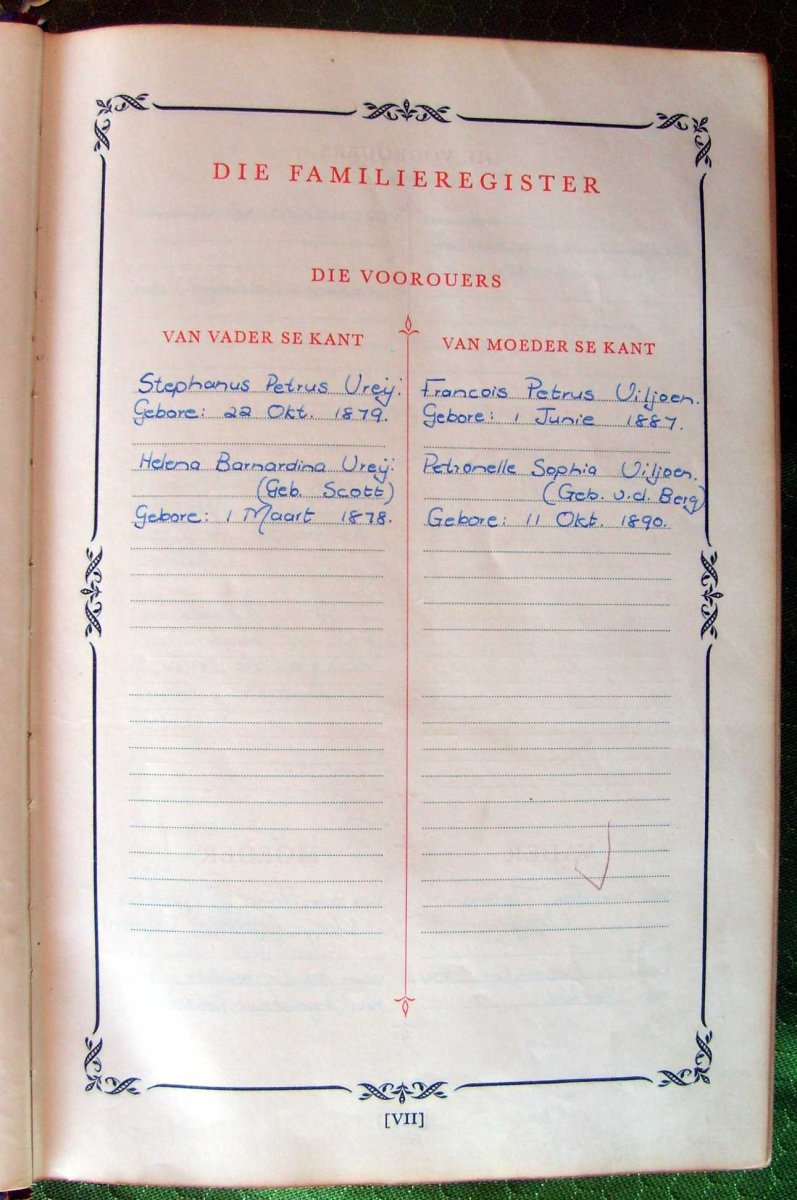 DIE FAMILIEREGISTER
DIE VOOROUERS
VAN VADER SE KANT
Stephanus Petrus Vreÿ.
Gebore: 22 Okt. 1879.
Helena Barnardina Vreÿ.
(Geb. Scott)
Gebore: 1 Maart 1878.
VAN MOEDER SE KANT
Francois Petrus Viljoen.
Gebore: 1 Junie 1887.
Petronelle Sophia Viljoen.
(Geb. v.d. Berg)
Gebore: 11 Okt. 1890.
[VII]